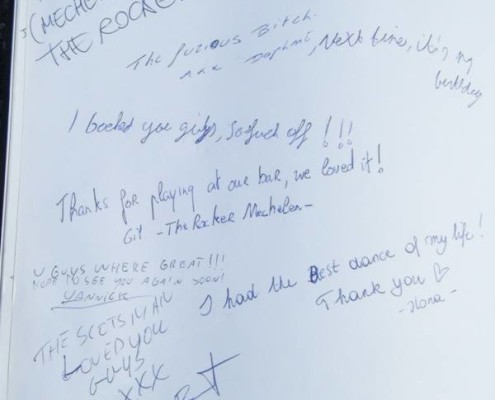 (MECHE
THE ROCKE
The furious Bitch.
aka Daphné, Next time, it's my
birthday
I booked you guys, so fuck off !!!
Thanks for playing at our bar, we loved it!
Git -The Rocker Mechelen-
U GUYS WHERE GREAT!!!
HOPE TO SEE YOU AGAIN SOON!
YANNICK
I had the Best dance of my life!
Thank you ♡
-Ilona-
THE SCOTSMAN
LOVED YOU
GUYS
XXX